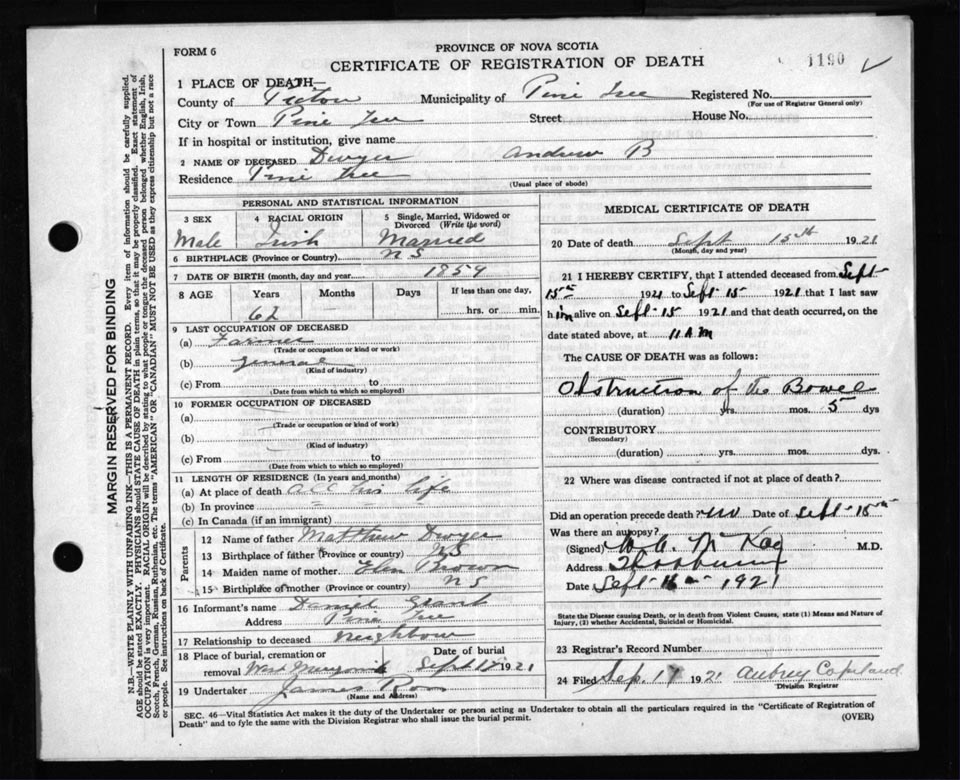 PROVINCE OF NOVA SCOTIA
FORM 6
CERTIFICATE OF REGISTRATION OF DEATH
1190
1 PLACE OF DEATH—
County of Pictou Municipality of Pine Tree Registered No.
(For use of Registrar General only)
City or Town Pine Tree Street House No.
If in hospital or institution, give name
2 NAME OF DECEASED Dwyer Andrew B
Residence Pine Tree
(Usual place of abode)
PERSONAL AND STATISTICAL INFORMATION
3 SEX 4 RACIAL ORIGIN 5 Single, Married, Widowed or
Divorced (Write the word)
Male Irish Married
6 BIRTHPLACE (Province or Country) NS
7 DATE OF BIRTH (month, day and year) 1859
8 AGE Years Months Days If less than one day,
62 hrs. or min.
9 LAST OCCUPATION OF DECEASED
(a) Farmer
(Trade or occupation or kind or work)
(b) General
(Kind of industry)
(c) From to
(Date from which to which so employed)
10 FORMER OCCUPATION OF DECEASED
(a)
(Trade or occupation or kind of work)
(b)
(Kind of industry)
(c) From to
(Date from which to which so employed)
11 LENGTH OF RESIDENCE (In years and months)
(a) At place of death all his life
(b) In province
(c) In Canada (if an immigrant)
Parents
12 Name of father Matthew Dwyer
13 Birthplace of father (Province or country) NS
14 Maiden name of mother Elen Brown
15 Birthplace of mother (Province or country) NS
16 Informant's name Daniel Grant
Address Pine Tree
17 Relationship to deceased Neighbour
18 Place of burial, cremation or Date of burial
removal West Sept 1921
19 Undertaker James
(Name and Address)
MEDICAL CERTIFICATE OF DEATH
20 Date of death Sept 15th 1921
(Month, day and year)
21 I HEREBY CERTIFY, that I attended deceased from Sept
15th 1921 to Sept 15 1921 that I last saw
him alive on Sept 15 1921 and that death occurred, on the
date stated above, at 11 AM
The CAUSE OF DEATH was as follows:
Obstruction of the Bowel
(duration) yrs. mos. 5 dys
CONTRIBUTORY
(Secondary)
(duration) yrs. mos. dys.
22 Where was disease contracted if not at place of death?
Did an operation precede death? no Date of Sept 15th
Was there an autopsy?
(Signed) W. A. McKay M.D.
Address Thorburn
Date Sept 16th 1921
State the Disease causing Death, or in death from Violent Causes, state (1) Means and Nature of
Injury, (2) whether Accidental, Suicidal or Homicidal.
23 Registrar's Record Number
24 Filed Sep. 17 1921 Aubrey Copeland
Division Registrar
SEC. 46—Vital Statistics Act makes it the duty of the Undertaker or person acting as Undertaker to obtain all the particulars required in the "Certificate of Registration of
Death" and to fyle the same with the Division Registrar who shall issue the burial permit.
(OVER)
MARGIN RESERVED FOR BINDING
N.B.—WRITE PLAINLY WITH UNFADING INK—THIS IS A PERMANENT RECORD. Every item of information should be carefully supplied.
AGE should be stated EXACTLY. PHYSICIANS should STATE CAUSE OF DEATH in plain terms, so that it may be properly classified. Exact statement of
OCCUPATION is very important. RACIAL ORIGIN will be described by stating to what people or tongue the deceased person belonged whether English, Irish,
Scotch, French, German, Russian, Ruthenian, etc. The terms "AMERICAN" OR "CANADIAN" MUST NOT BE USED as they express citizenship but not a race
or people. See instructions on back of Certificate.